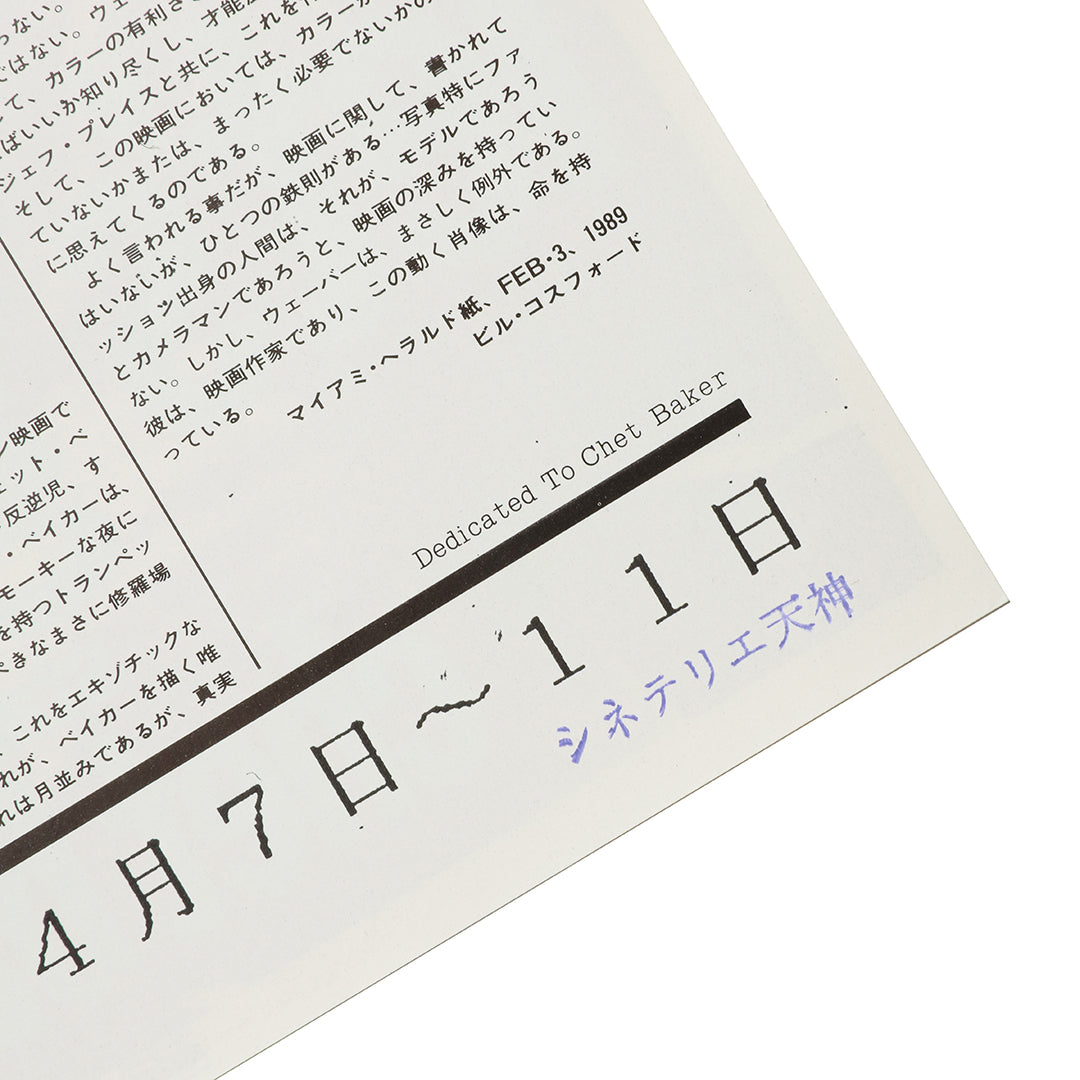 らない。
ではない。ウェ
て、カラーの有利さ
ばいいか知り尽くし、才能
ジェフ・プレイスと共に、これを
そして、この映画においては、カラーが
ていないかまたは、まったく必要でないかの
に思えてくるのである。
よく言われる事だが、映画に関して、書かれて
はいないが、ひとつの鉄則がある…写真特にファ
ッション出身の人間は、それが、モデルであろう
とカメラマンであろうと、映画の深みを持ってい
ない。しかし、ウェーバーは、まさしく例外である。
彼は、映画作家であり、この動く肖像は、命を持
っている。
マイアミ・ヘラルド紙、FEB・3、1989
ビル・コスフォード
ン映画で
ェット・ベ
反逆児、す
・ベイカーは、
モーキーな夜に
を持つトランペッ
べきなまさに修羅場
、これをエキゾチックな
れが、ベイカーを描く唯
れは月並みであるが、真実
Dedicated To Chet Baker
4月7日〜11日
シネテリエ天神